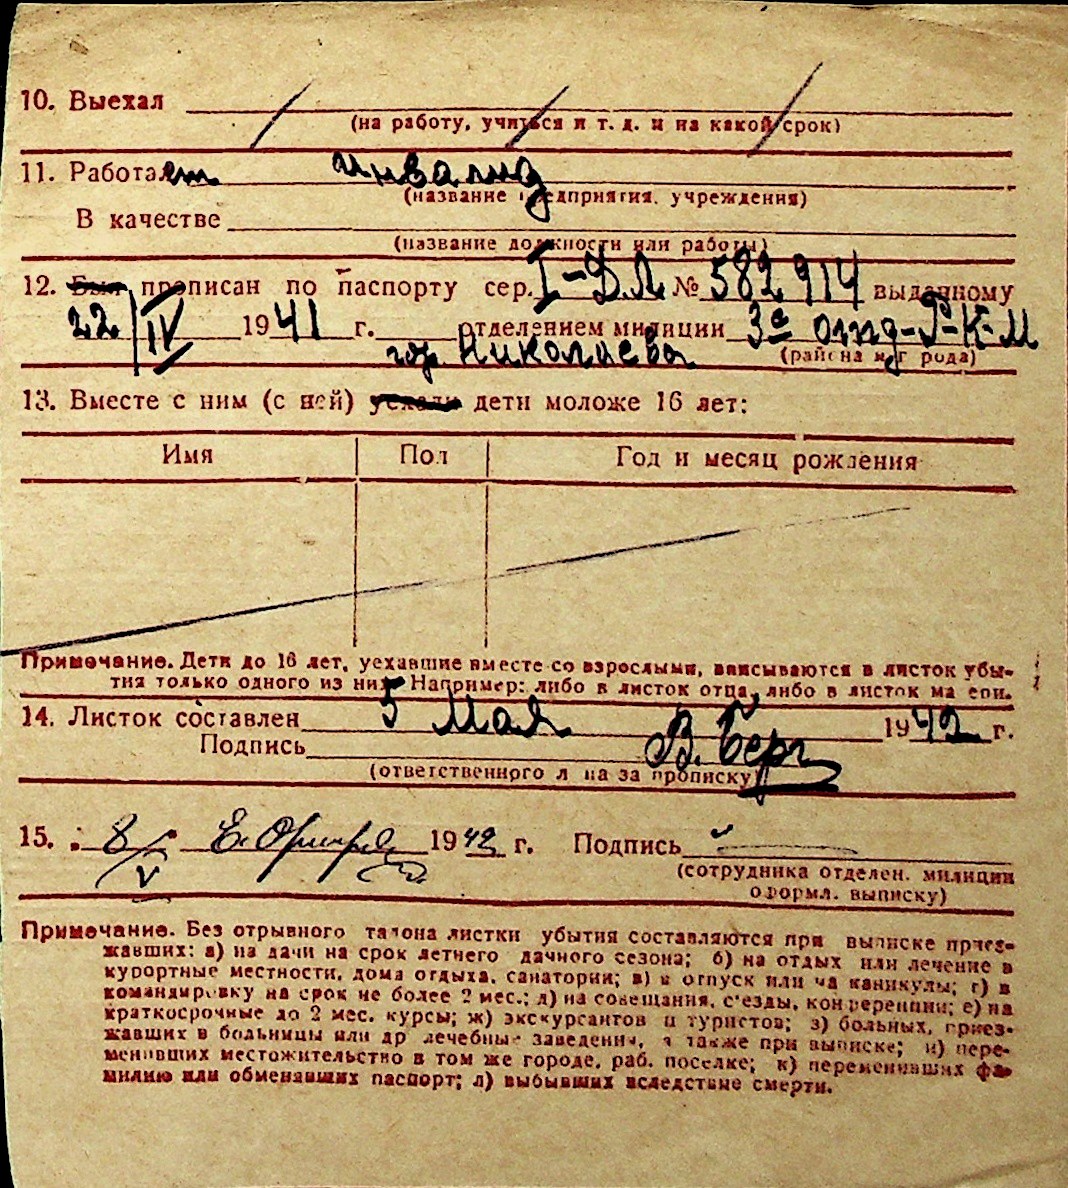 10. Выехал
(на работу, учиться и т. д. и на какой срок)
11. Работает инвалид
(название предприятия, учреждения)
В качестве
(название должности или работы)
12. Был прописан по паспорту сер. I-ДЛ № 582914 выданному
22/IV 1941 г. отделением милиции 3е отд-Р-К-М
гор. Николаева (района и г рода)
13. Вместе с ним (с ней) уехали дети моложе 16 лет:
Имя Пол Год и месяц рождения
Примечание. Дети до 16 лет, уехавшие вместе со взрослыми, вписываются в листок убы-
тия только одного из них. Например: либо в листок отца, либо в листок ма ери.
14. Листок составлен 5 Мая 1942 г.
Подпись В. Берг
(ответственного л ца за прописку)
15. 8/V 1942 г. Подпись
(сотрудника отделен. милиции
оформл. выписку)
Примечание. Без отрывного талона листки убытия составляются при выписке приез-
жавших: а) на дачи на срок летнего дачного сезона; б) на отдых или лечение в
курортные местности, дома отдыха, санатории; в) в отпуск или на каникулы; г) в
командировку на срок не более 2 мес.; д) на совещания, с'езды, конференции; е) на
краткосрочные до 2 мес. курсы; ж) экскурсантов и туристов; з) больных, приез-
жавших в больницы или др лечебные заведения, а также при выписке; и) пере-
менивших местожительство в том же городе, раб. поселке; к) переменивших фа-
милию или обменявших паспорт; л) выбывших вследствие смерти.